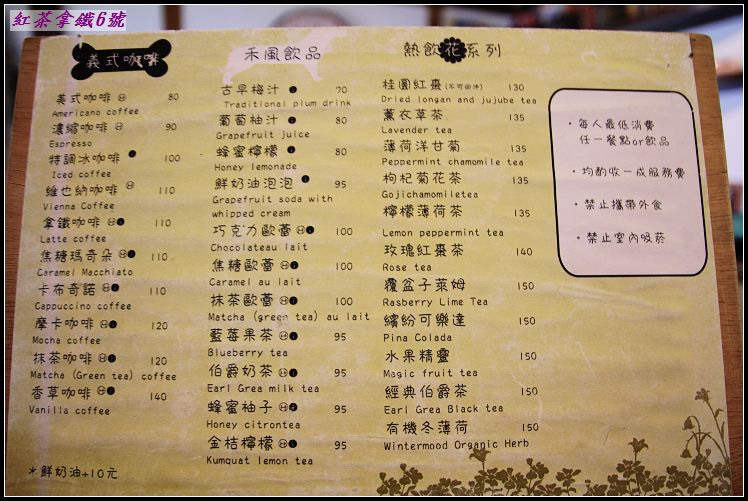 紅茶拿鐵6號
義式咖啡
美式咖啡 Ⓗ 80
Americano coffee
濃縮咖啡 Ⓗ 90
Espresso
特調冰咖啡 ● 100
Iced coffee
維也納咖啡 Ⓗ 110
Vienna Coffee
拿鐵咖啡 Ⓗ● 110
Latte coffee
焦糖瑪奇朵 Ⓗ● 110
Caramel Macchiato
卡布奇諾 Ⓗ● 110
Cappuccino coffee
摩卡咖啡 Ⓗ● 120
Mocha coffee
抹茶咖啡 Ⓗ● 120
Matcha (Green tea) coffee
香草咖啡 Ⓗ● 140
Vanilla coffee
*鮮奶油+10元
禾風飲品
古早梅汁 ● 70
Traditional plum drink
葡萄柚汁 ● 80
Grapefruit juice
蜂蜜檸檬 ● 80
Honey lemonade
鮮奶油泡泡 ● 95
Grapefruit soda with
whipped cream
巧克力歐蕾 Ⓗ● 100
Chocolateau lait
焦糖歐蕾 Ⓗ● 100
Caramel au lait
抹茶歐蕾 Ⓗ● 100
Matcha (green tea) au lait
藍莓果茶 Ⓗ● 95
Blueberry tea
伯爵奶茶 Ⓗ● 95
Earl Grea milk tea
蜂蜜柚子 Ⓗ● 95
Honey citrontea
金桔檸檬 Ⓗ● 95
Kumquat lemon tea
熱飲花系列
桂圓紅棗(不可回沖) 130
Dried longan and jujube tea
薰衣草茶 135
Lavender tea
薄荷洋甘菊 135
Peppermint chamomile tea
枸杞菊花茶 135
Gojichamomiletea
檸檬薄荷茶 135
Lemon peppermint tea
玫瑰紅棗茶 140
Rose tea
覆盆子萊姆 150
Rasberry Lime Tea
繽紛可樂達 150
Pina Colada
水果精靈 150
Magic fruit tea
經典伯爵茶 150
Earl Grea Black tea
有機冬薄荷 150
Wintermood Organic Herb
·每人最低消費
任一餐點or飲品
·均酌收一成服務費
·禁止攜帶外食
·禁止室內吸菸